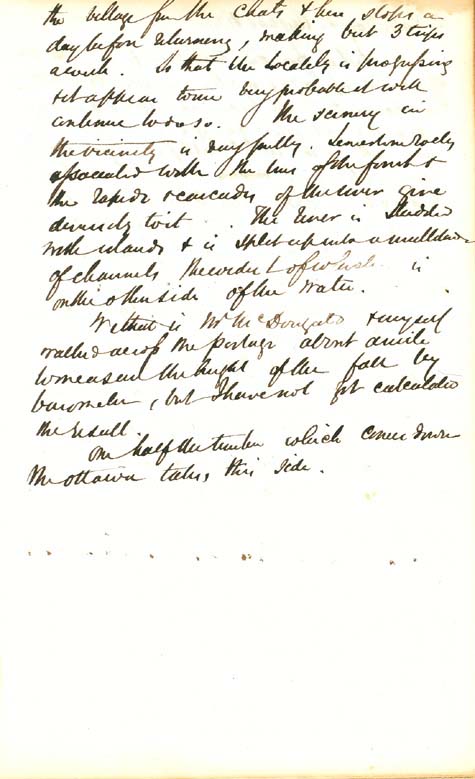 the village for the Chats & here stops a
day before returning, making but 3 trips
a week. So that the Locality is progressing
& it appears to me very probable it will
continue to do so. The scenery in
the vicinity is very pretty. Limestone rocks
associated with the hues of the forest &
the rapids & cascades of the river give
diversity to it. The River is studded
with islands & is split up into a multitude
of channels the widest of which is
on the other side of the water.
We that is Mr McDougall & myself
walked across the portage about a mile
to measure the height of the fall by
barometer, but I have not yet calculated
the result.
One half the timber which comes down
the Ottawa takes this side.